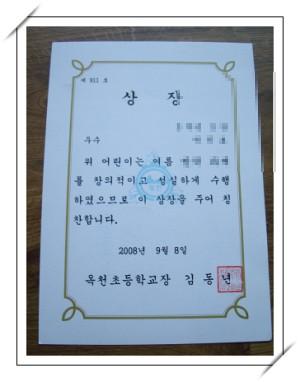 제 931 호
상 장
우수
위 어린이는 여름
를 창의적이고 성실하게 수행
하였으므로 이 상장을 주어 칭
찬합니다.
2008년 9월 8일
옥천초등학교장 김 동 년